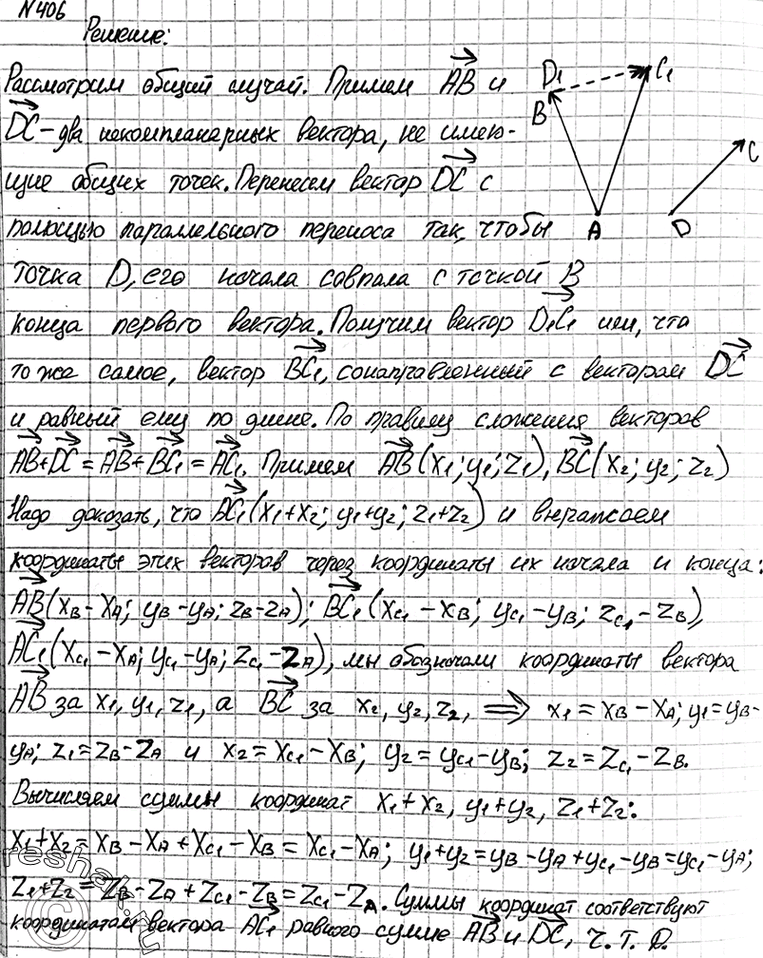 N406
Решение:
Рассмотрим общий случай: Примем AB и
DC – два некомпланарных вектора, не имею-
щие общих точек. Перенесем вектор DC с
помощью параллельного переноса так, чтобы
точка D, его начала совпала с точкой B
конца первого вектора. Получим вектор D1C1 или, что
то же самое, вектор BC1, сонаправленный с вектором DC
и равный ему по длине. По правилу сложения векторов
AB+DC = AB+BC1 = AC1. Примем AB(x1; y1; z1), BC(x2; y2; z2)
Надо доказать, что AC1(x1+x2; y1+y2; z1+z2) и выражаем
координаты этих векторов через координаты их начала и конца:
AB(xB – xA; yB – yA; zB – zA); BC1(xC1 – xB; yC1 – yB; zC1 – zB),
AC1(xC1 – xA; yC1 – yA; zC1 – zA), мы обозначали координаты вектора
AB за x1, y1, z1, а BC за x2, y2, z2, ⟹ x1 = xB – xA; y1 = yB–
yA; z1 = zB – zA и x2 = xC1 – xB; y2 = yC1 – yB; z2 = zC1 – zB.
Вычисляем суммы координат x1 + x2, y1 + y2, z1 + z2:
x1+x2 = xB – xA + xC1 – xB = xC1 – xA; y1+y2 = yB – yA + yC1 – yB = yC1 – yA;
z1+z2 = zB – zA + zC1 – zB = zC1 – zA. Суммы координат соответствуют
координатам вектора AC1 равного сумме AB и DC, ч.т.д.
D1
C1
B
C
A
D
reshak.ru